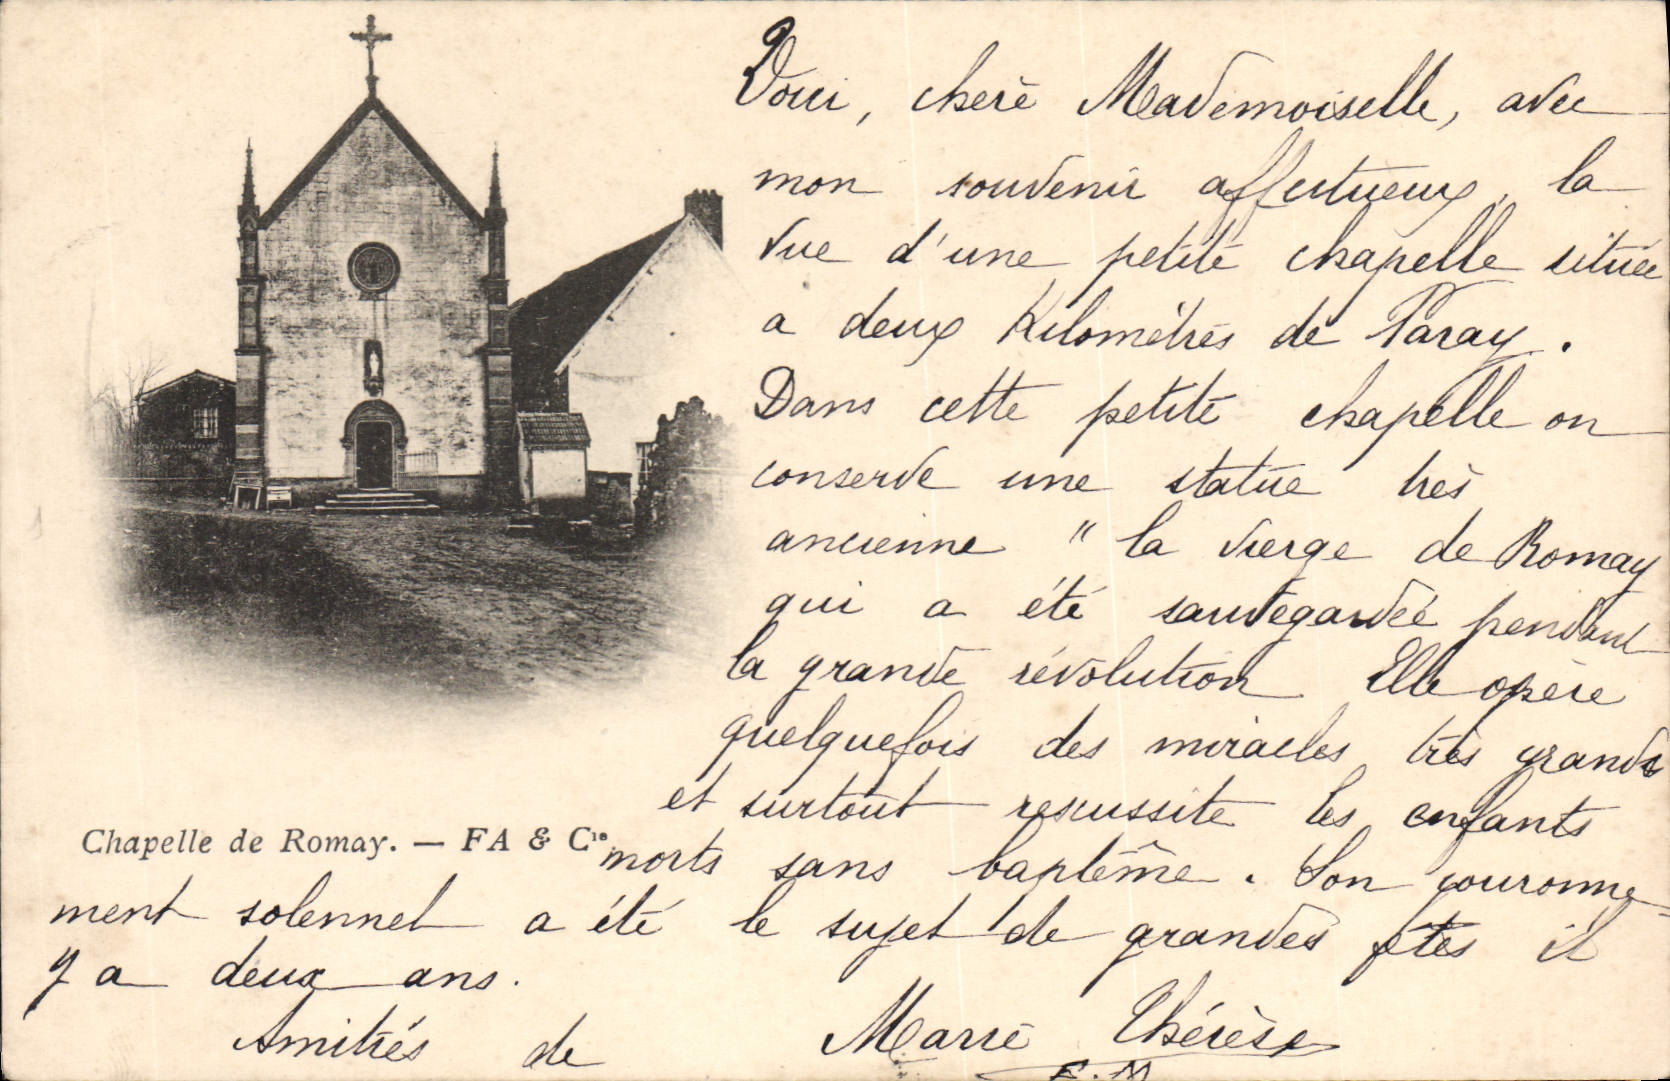 Voici, chère Mademoiselle, avec
mon souvenir affectueux, la
vue d'une petite chapelle située
a deux Kilomètres de Paray.
Dans cette petite chapelle on
conserve une statue très
ancienne " la vierge de Romay
qui a été sauvegardée pendant
la grande révolution Elle opère
quelquefois des miracles très grands
et surtout ressuscite les enfants
Chapelle de Romay. — FA & Cie.
morts sans baptême. Son couronne-
ment solennel a été le sujet de grandes fêtes il
y a deux ans.
Amitiés de Marie Thérèse
E. M